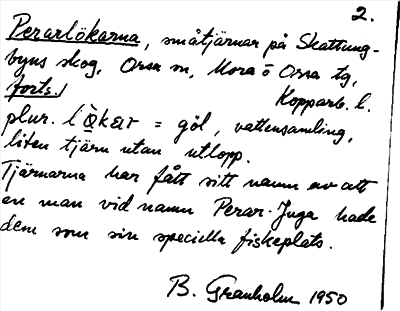 2.
Perarlökarna, småtjärnar på Skattung-
byns skog, Orsa sn, Mora o Orsa tg,
forts./ Kopparb. l.
plur. lò̹kar = göl, vattensamling,
liten tjärn utan utlopp.
Tjärnarna har fått sitt namn av att
en man vid namn Perar-Juga hade
dem som sin speciella fiskeplats.
B. Granholm 1950